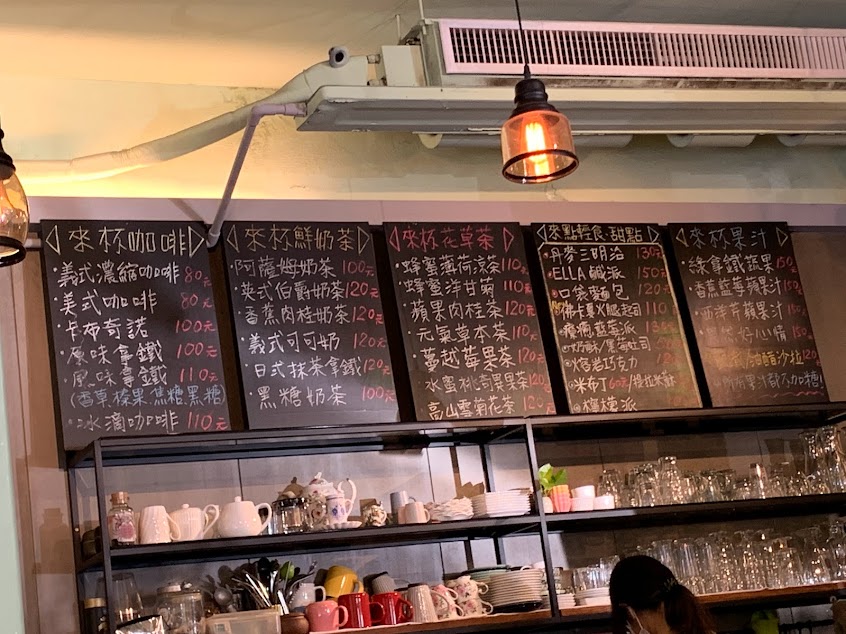 來杯咖啡
·義式濃縮咖啡 80元
·美式咖啡 80元
·卡布奇諾 100元
·原味拿鐵 100元
·風味拿鐵 110元
(香草.榛果.焦糖.黑糖)
·冰滴咖啡 110元
來杯鮮奶茶
·阿薩姆奶茶 100元
·英式伯爵奶茶 120元
·香蕉肉桂奶茶 120元
·義式可可奶 120元
·日式抹茶拿鐵 120元
·黑糖奶茶 100元
來杯花草茶
·蜂蜜薄荷涼茶 110元
·蜂蜜洋甘菊 110元
·蘋果肉桂茶 120元
·元氣草本茶 110元
·蔓越莓果茶 120元
·水蜜桃 蘋果茶 120元
·高山雪菊花茶 120元
來點輕食.甜點
·丹麥三明治 130元
·ELLA鹹派 150元
·口袋麵包 120元
佛卡夏X 起司 110
藍莓派
老巧克力 120
米布丁 60元
檸檬派
來杯果汁
·綠拿鐵蔬果 150元
·香蕉藍莓蘋果汁 150元
·西洋芹蘋果汁 150元
好心情 150元
沙拉 120